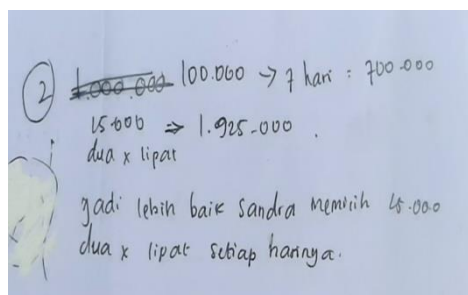 2 1.000.000 100.000 → 7 hari : 700.000
15.000 ⇒ 1.925.000.
dua x lipat
Jadi lebih baik Sandra memilih 15.000
dua x lipat setiap harinya.